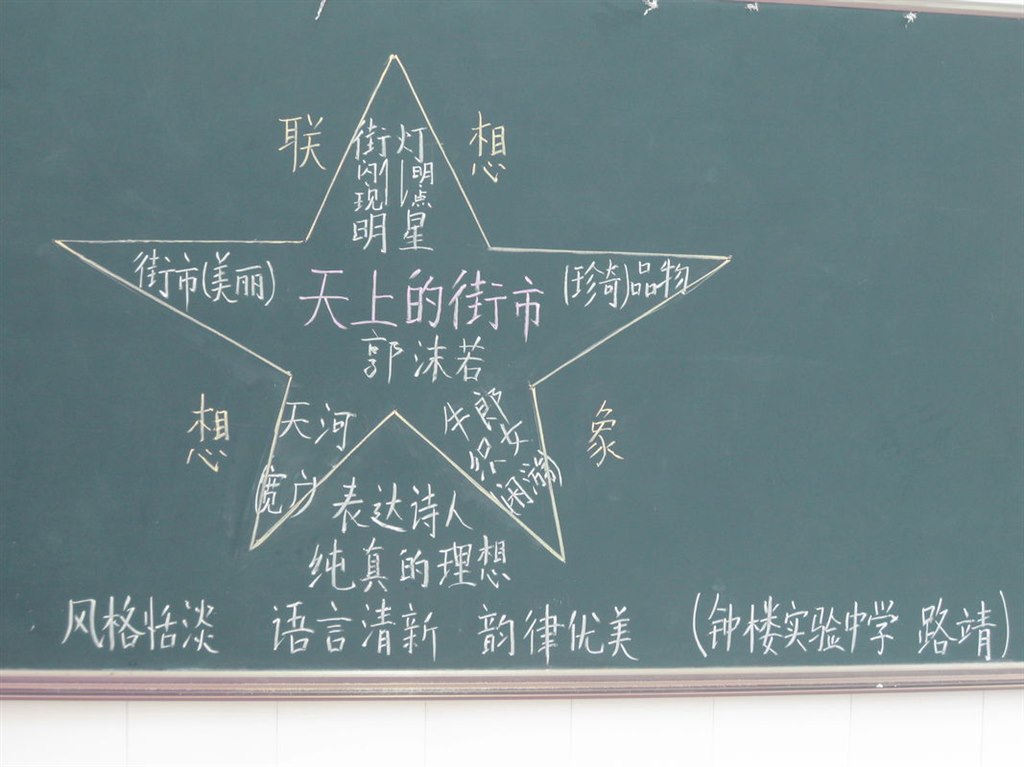 联 想
街灯
闪 明
现 点
明星
街市(美丽)
天上的街市
(珍奇)品物
郭沫若
想 象
天河
(宽广)
牛郎
织女
(闲游)
表达诗人
纯真的理想
风格恬淡 语言清新 韵律优美 (钟楼实验中学 路靖)